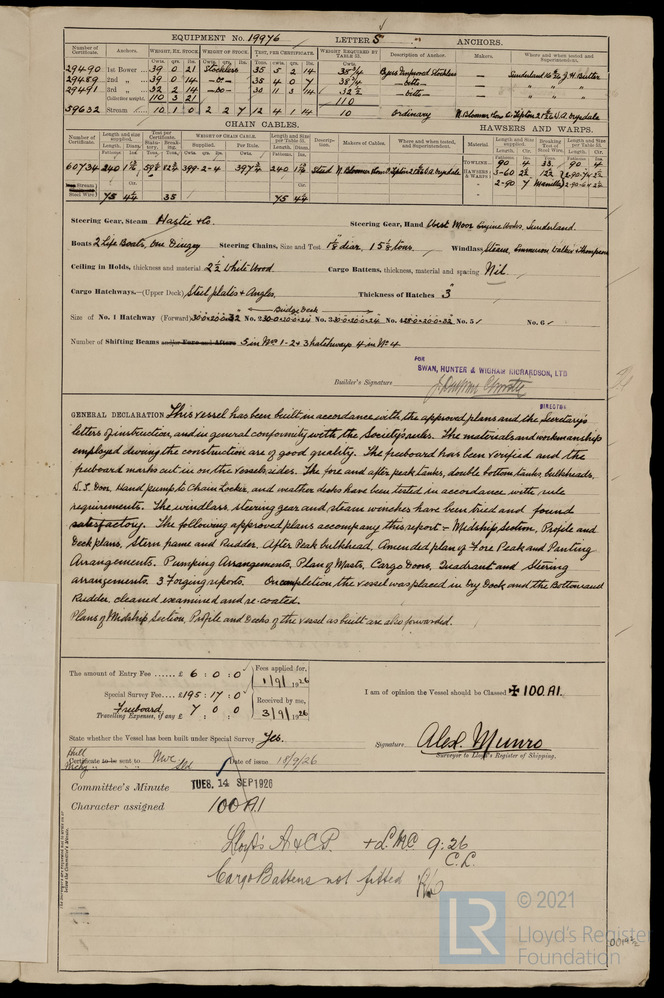 EQUIPMENT No. 19976 LETTER S ANCHORS.
Number of Certificate. Anchors. WEIGHT, EX. STOCK WEIGHT OF STOCK. TEST, PER CERTIFICATE. WEIGHT REQUIRED BY TABLE 53. Description of Anchor. Makers. Where and when tested and Superintendent.
29490 1st Bower 39 0 21 Stockless 35 5 2 14 38¾ Stockless Sunderland J.H. Butler
29489 2nd „ 39 0 14 -do- 35 4 0 7 38¾ -ditto- „ „ „
29491 3rd „ 32 2 14 -do- 30 11 3 14 32½ -ditto- „ „ „
Collective weight 110 3 21 110
39632 Stream 10 1 0 2 2 7 12 4 1 14 10 Ordinary
CHAIN CABLES. HAWSERS AND WARPS.
Number of Certificate. Length and size supplied. Test per Certificate. WEIGHT OF CHAIN CABLE. Length and Size per Table 53. Description. Makers of Cables. Where and when tested, and Superintendent. Material Length and Size supplied. Breaking Test of Steel Wire. Length and Size per Table 53.
Supplied. Per Rule.
60734 240 399-2-4 240 Stud
TOWLINE 90 4 33 90 4
HAWSERS & WARPS
2-90 7 Manilla
Steel Wire 75 75
Steering Gear, Steam Hastie & Co. Steering Gear, Hand West Moor Engine Works, Sunderland.
Boats 2 Life Boats, One Dingey Steering Chains, Size and Test 1⅛ diar, 15⅛ tons. Windlass Steam, Emmerson Walker & Thompson
Ceiling in Holds, thickness and material 2½ White Wood Cargo Battens, thickness, material and spacing Nil.
Cargo Hatchways.—(Upper Deck) Steel plates & Angles, Thickness of Hatches 3"
Bridge Deck
Size of No. 1 Hatchway (Forward) No. 2 No. 3 No. 4 No. 5 No. 6
Number of Shifting Beams and/or Fore and Afters 5 in Nos 1-2 & 3 hatchways 4 in No 4
FOR
SWAN, HUNTER & WIGHAM RICHARDSON, LTD
Builder's Signature
DIRECTOR
GENERAL DECLARATION This vessel has been built in accordance with the approved plans and the Secretary's
letters of instruction, and in general conformity with the Society's rules. The materials and workmanship
employed during the construction are of good quality. The freeboard has been verified and the
freeboard marks cut in on the vessel's sides. The fore and after peak tanks, double bottom tanks, bulkheads,
Hand pump to Chain Locker, and weather decks have been tested in accordance with rule
requirements. The windlass, steering gear and steam winches have been tried and found
satisfactory. The following approved plans accompany this report :- Midship Section, Profile and
Deck plans, Stern frame and Rudder, After Peak bulkhead, Amended plan of Fore Peak and Panting
Arrangements, Pumping Arrangements, Plan of Masts, Cargo Doors, Quadrant and Steering
arrangements. 3 Forging reports. On completion, the vessel was placed in Dry Dock and the Bottom and
Rudder, cleaned examined and re-coated.
Plans of Midship Section, Profile and Decks of the vessel as built are also forwarded.
The amount of Entry Fee ...... £ 6 : 0 : 0 Fees applied for, 1/9/1926
Special Survey Fee .... £195 : 17 : 0 Received by me,
Freeboard 7 0 0
Travelling Expenses, if any £ 3/9/1926
I am of opinion the Vessel should be Classed ✠ 100 A1.
State whether the Vessel has been built under Special Survey Yes.
Signature Alex. Munro
Surveyor to Lloyd's Register of Shipping.
Hull
Mchy Certificate to be sent to Nwc Sld Date of issue 18/9/26
Committee's Minute TUES. 14 SEP 1926
Character assigned 100 A1
Lloyd's A & C.P. + L.M.C 9.26
C.L.
Cargo Battens not fitted
© 2021
LR Lloyd's Register
Foundation